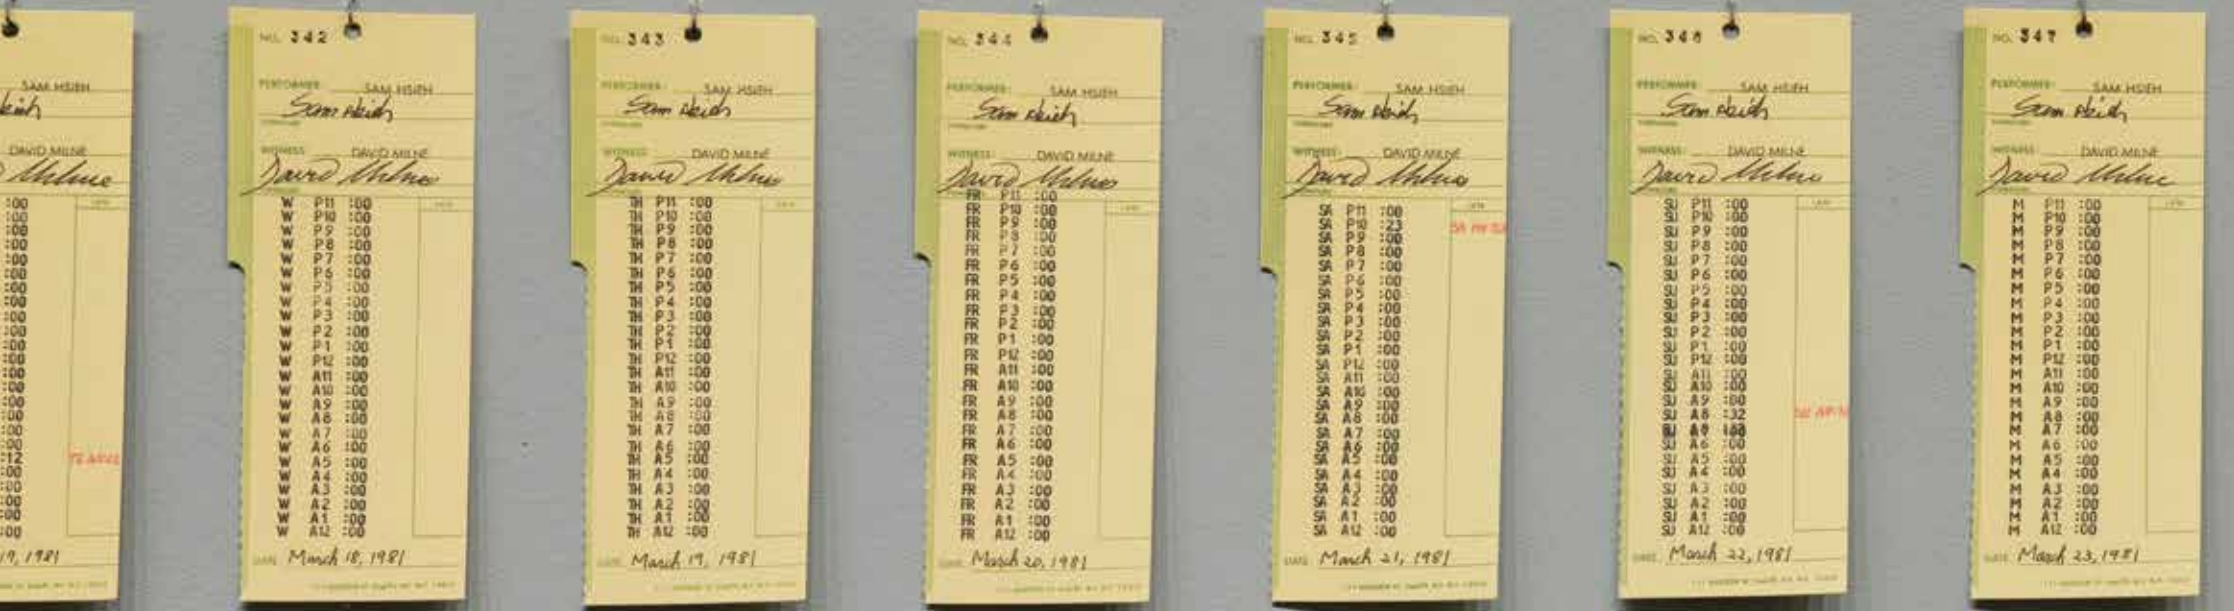 SAM HSIEH
DAVID MILNE
Milne
:00
:00
:00
:00
:00
:00
:00
:00
:00
:00
:00
:00
:00
:00
:00
:00
:00
:00
:12
:00
:00
:00
:00
:00
1981
NO. 342
PERFORMER: SAM HSIEH
Sam Hsieh
WITNESS: DAVID MILNE
David Milne
LATE
W P11 :00
W P10 :00
W P9 :00
W P8 :00
W P7 :00
W P6 :00
W P5 :00
W P4 :00
W P3 :00
W P2 :00
W P1 :00
W P12 :00
W A11 :00
W A10 :00
W A9 :00
W A8 :00
W A7 :00
W A6 :00
W A5 :00
W A4 :00
W A3 :00
W A2 :00
W A1 :00
W A12 :00
DATE March 18, 1981
NO. 343
PERFORMER: SAM HSIEH
Sam Hsieh
WITNESS: DAVID MILNE
David Milne
LATE
TH P11 :00
TH P10 :00
TH P9 :00
TH P8 :00
TH P7 :00
TH P6 :00
TH P5 :00
TH P4 :00
TH P3 :00
TH P2 :00
TH P1 :00
TH P12 :00
TH A11 :00
TH A10 :00
TH A9 :00
TH A8 :00
TH A7 :00
TH A6 :00
TH A5 :00
TH A4 :00
TH A3 :00
TH A2 :00
TH A1 :00
TH A12 :00
DATE March 19, 1981
NO. 344
PERFORMER: SAM HSIEH
Sam Hsieh
WITNESS: DAVID MILNE
David Milne
LATE
FR P11 :00
FR P10 :00
FR P9 :00
FR P8 :00
FR P7 :00
FR P6 :00
FR P5 :00
FR P4 :00
FR P3 :00
FR P2 :00
FR P1 :00
FR P12 :00
FR A11 :00
FR A10 :00
FR A9 :00
FR A8 :00
FR A7 :00
FR A6 :00
FR A5 :00
FR A4 :00
FR A3 :00
FR A2 :00
FR A1 :00
FR A12 :00
DATE March 20, 1981
NO. 345
PERFORMER: SAM HSIEH
Sam Hsieh
WITNESS: DAVID MILNE
David Milne
LATE
SA P11 :00
SA P10 :23
SA P9 :00
SA P8 :00
SA P7 :00
SA P6 :00
SA P5 :00
SA P4 :00
SA P3 :00
SA P2 :00
SA P1 :00
SA P12 :00
SA A11 :00
SA A10 :00
SA A9 :00
SA A8 :00
SA A7 :00
SA A6 :00
SA A5 :00
SA A4 :00
SA A3 :00
SA A2 :00
SA A1 :00
SA A12 :00
DATE March 21, 1981
NO. 346
PERFORMER: SAM HSIEH
Sam Hsieh
WITNESS: DAVID MILNE
David Milne
LATE
SU P11 :00
SU P10 :00
SU P9 :00
SU P8 :00
SU P7 :00
SU P6 :00
SU P5 :00
SU P4 :00
SU P3 :00
SU P2 :00
SU P1 :00
SU P12 :00
SU A11 :00
SU A10 :00
SU A9 :00
SU A8 :32
SU A6 :00
SU A5 :00
SU A4 :00
SU A3 :00
SU A2 :00
SU A1 :00
SU A12 :00
DATE March 22, 1981
NO. 347
PERFORMER: SAM HSIEH
Sam Hsieh
WITNESS: DAVID MILNE
David Milne
LATE
M P11 :00
M P10 :00
M P9 :00
M P8 :00
M P7 :00
M P6 :00
M P5 :00
M P4 :00
M P3 :00
M P2 :00
M P1 :00
M P12 :00
M A11 :00
M A10 :00
M A9 :00
M A8 :00
M A7 :00
M A6 :00
M A5 :00
M A4 :00
M A3 :00
M A2 :00
M A1 :00
M A12 :00
DATE March 23, 1981